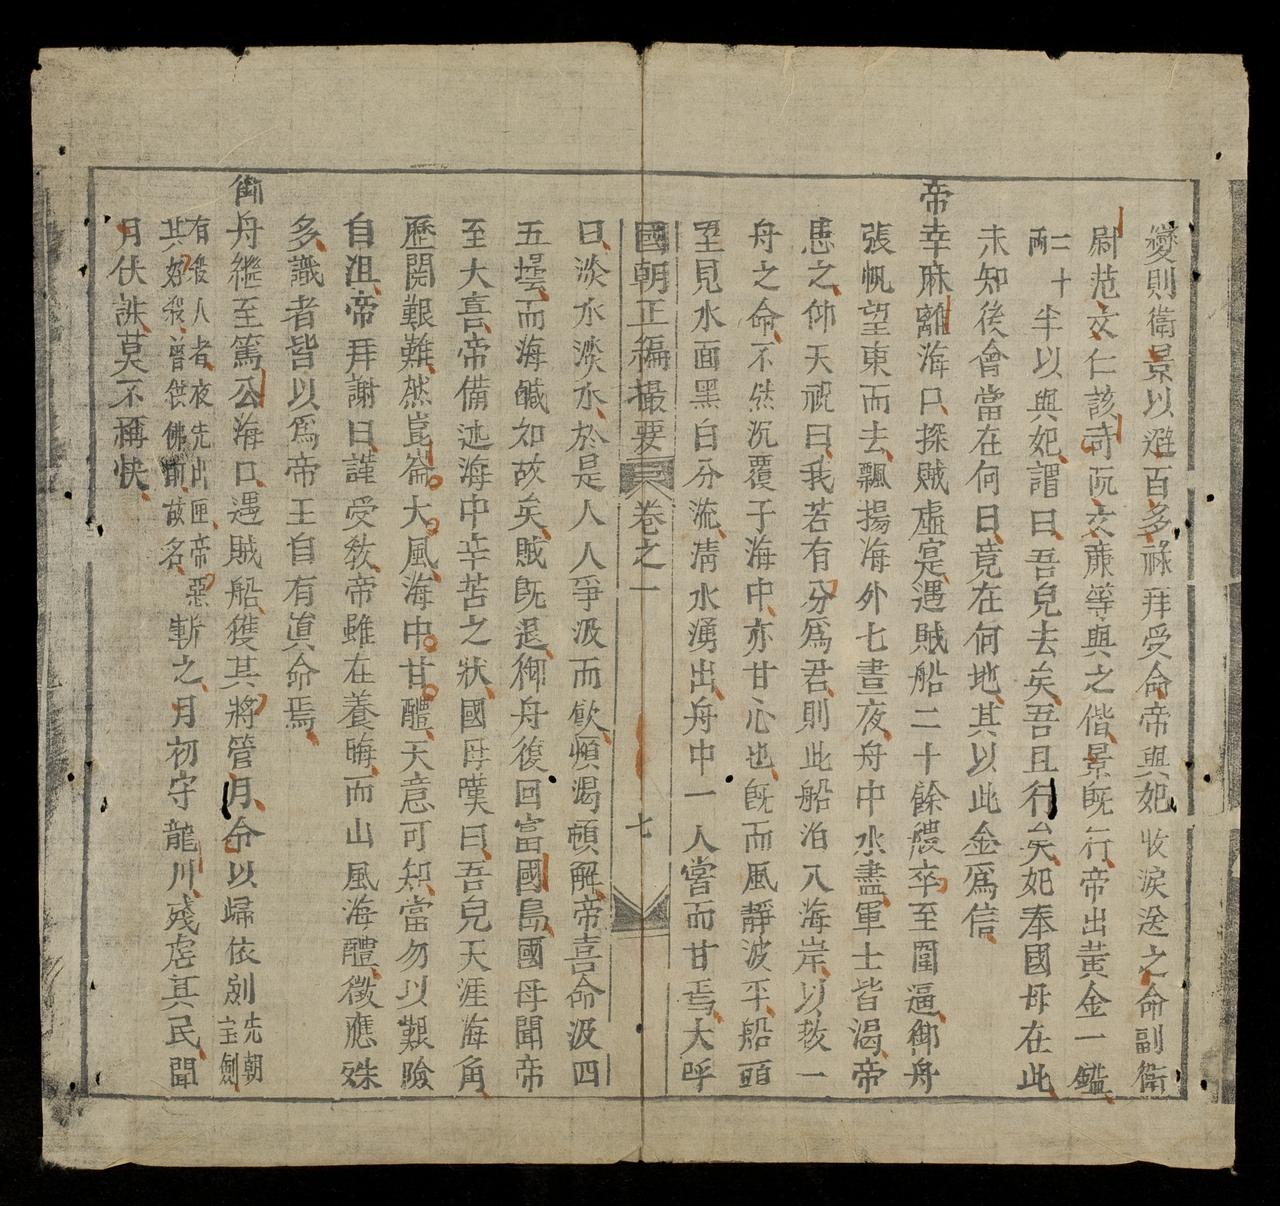 變則衛景以避百多祿拜受命帝與妃收淚送之命副衛
尉范文仁該奇阮文廉等與之偕景旣行帝出黃金一鎰
二十兩半以與妃謂曰吾兒去矣吾且行矣妃奉國母在此
未知後會當在何日竟在何地其以此金爲信
帝幸麻離海口探賊虛寔遇賊船二十餘艘卒至圍逼御舟
張帆望東而去飄揚海外七晝夜舟中水盡軍士皆渴帝
患之仰天祝曰我若有分爲君則此船泊入海岸以救一
舟之命不然沉覆于海中亦甘心也旣而風靜波平船頭
望見水面黑白分流淸水湧出舟中一人嘗而甘焉大呼
國朝正編撮要 卷之一 七
曰淡水淡水於是人人爭汲而飮煩渴頓解帝喜命汲四
五壜而海鹹如故矣賊旣退御舟復回富國島國母聞帝
至大喜帝備述海中辛苦之狀國母嘆曰吾兒天涯海角
歷閱艱難然崑崙大風海中甘醴天意可知當勿以艱險
自沮帝拜謝曰謹受敎帝雖在養晦而山風海醴徵應殊
多識者皆以爲帝王自有眞命焉
御舟繼至篤公海口遇賊船獲其將管月命以歸依劍先朝宝劍
有殺人者夜先出匣帝惡其好殺曾供佛前故名斬之月初守龍川殘虐其民聞
月伏誅莫不稱快